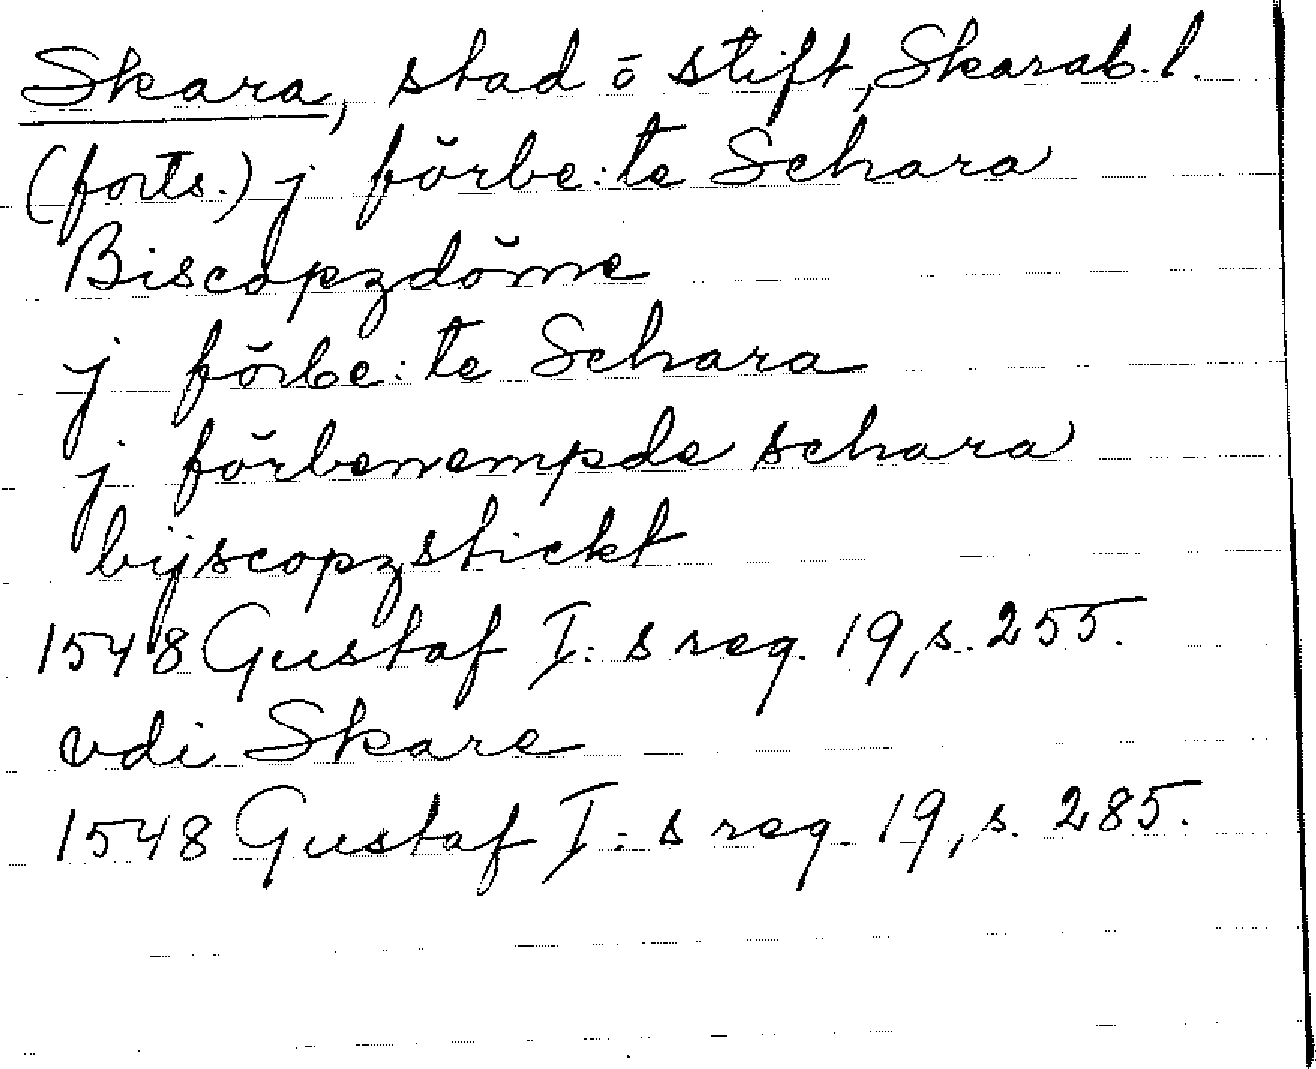 Skara, stad ō stift, Skarab. l.
(forts.) j förbe:te Schara
Biscopzdöme
j förbe:te Schara
j förbenempde schara
bijscopzstickt
1548 Gustaf I:s reg. 19, s. 255.
vdi Skare
1548 Gustaf I:s reg. 19, s. 285.